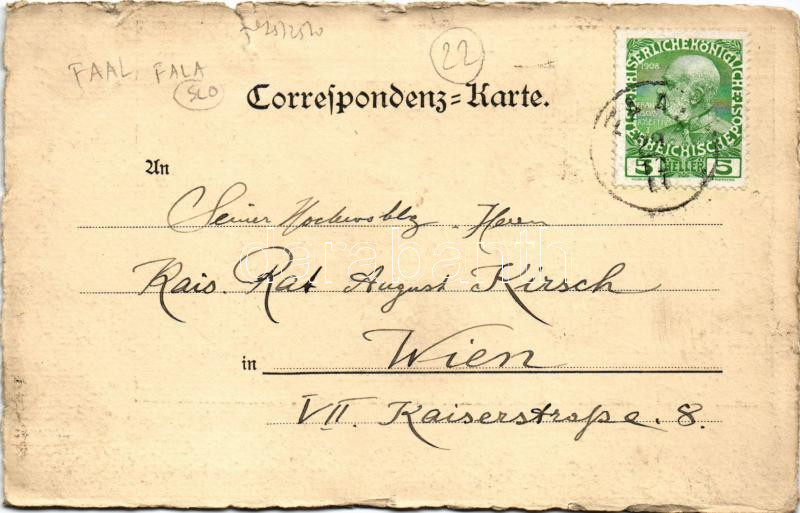 22
FAAL, FALA
SLO
Correſpondenz=Karte.
KAISERLICHE KÖNIGLICHE
1908
ÖSTERREICHISCHE POST
5 HELLER 5
An
Seiner Hochwohlg. Herrn
darabanth
Kais. Rat August Kirsch
in Wien
VII. Kaiserstraße. 8.